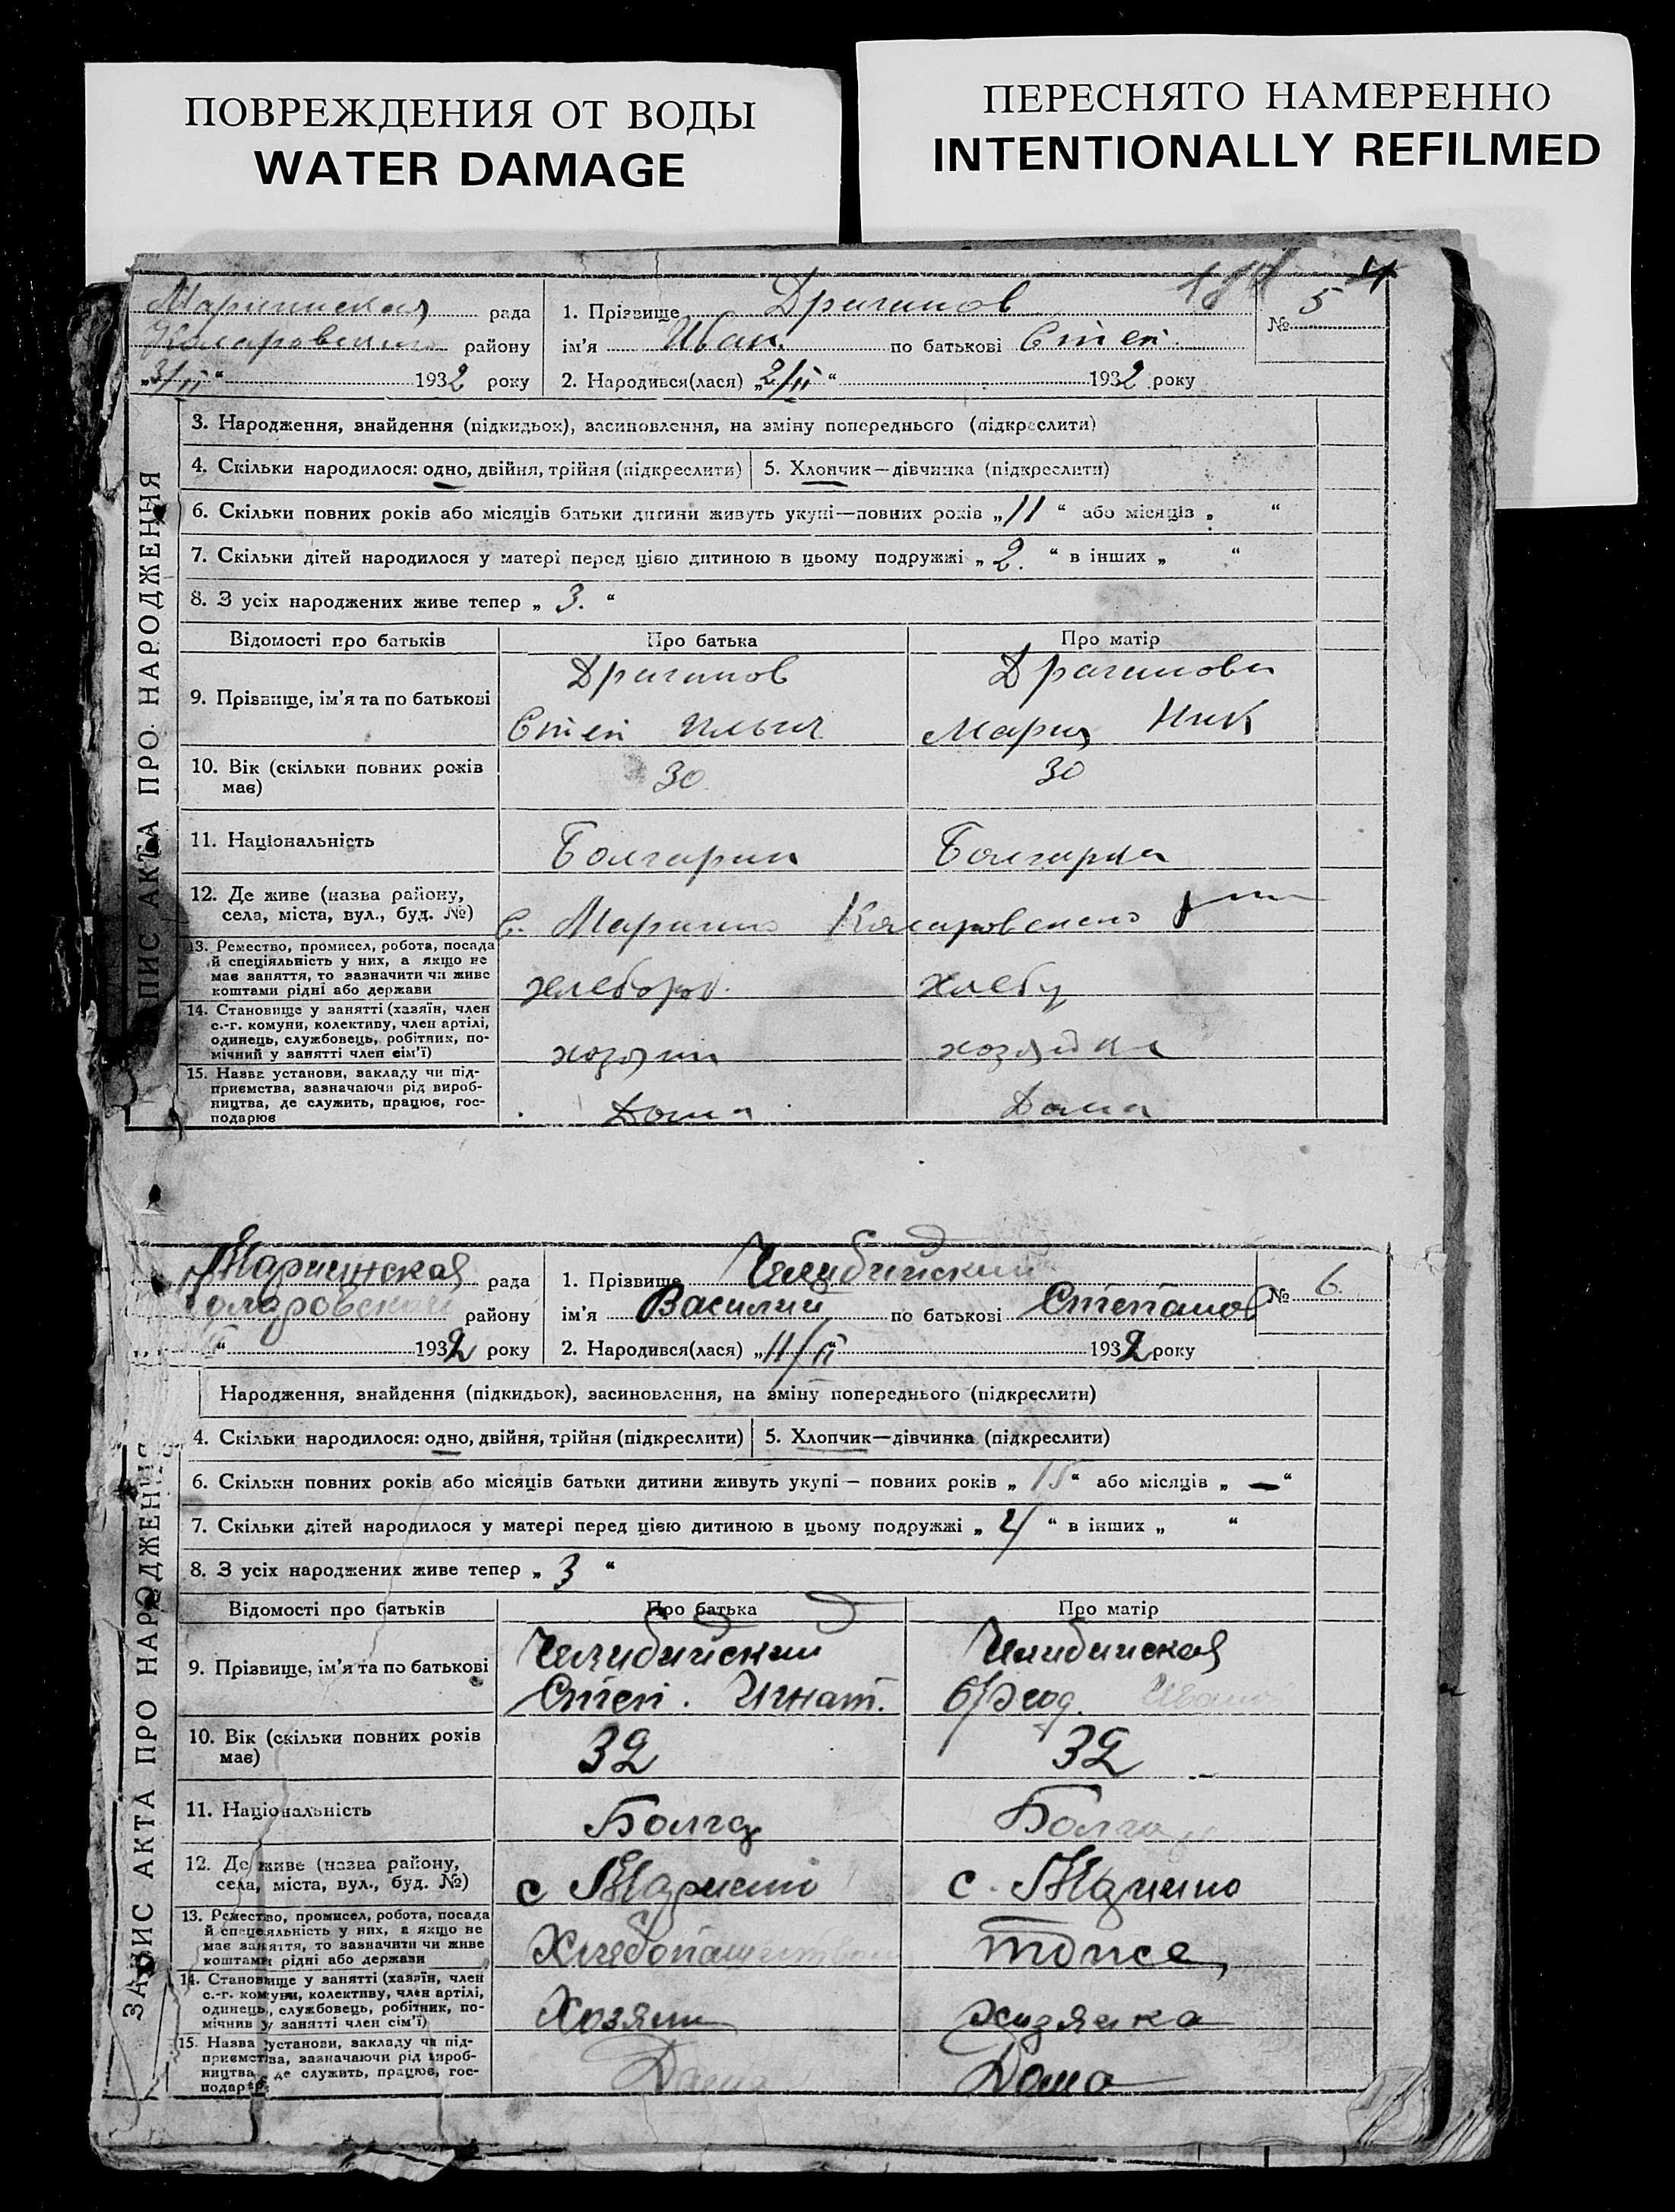 ПОВРЕЖДЕНИЯ ОТ ВОДЫ
WATER DAMAGE
ПЕРЕСНЯТО НАМЕРЕННО
INTENTIONALLY REFILMED
ЗАПИС АКТА ПРО НАРОДЖЕННЯ
рада
Коларовского району
„3/II“ 1932 року
1. Прізвище Драгинов
ім'я Иван по батькові Степ.
2. Народився(лася) „2/II“ 1932 року
№ 5
3. Народження, знайдення (підкидьок), засиновлення, на зміну попереднього (підкреслити)
4. Скільки народилося: одно, двійня, трійня (підкреслити) 5. Хлопчик—дівчинка (підкреслити)
6. Скільки повних років або місяців батьки дитини живуть укупі—повних років „11“ або місяців „ “
7. Скільки дітей народилося у матері перед цією дитиною в цьому подружжі „2.“ в інших „ “
8. З усіх народжених живе тепер „3.“
Відомості про батьків Про батька Про матір
9. Прізвище, ім'я та по батькові
Драгинов Драгинова
Степ Ильич Мария Ник
10. Вік (скільки повних років має) 30 30
11. Національність Болгарин Болгарка
12. Де живе (назва району,
села, міста, вул., буд. №)
с. Марино Коларовского
13. Ремество, промисел, робота, посада
й спеціяльність у них, а якщо не
має заняття, то зазначити чи живе
коштами рідні або держави
хлебороб.
14. Становище у занятті (хазяїн, член
с.-г. комуни, колективу, член артілі,
одинець, службовець, робітник, по-
мічний у занятті член сім'ї)
хозяин хозяйка
15. Назва установи, закладу чи під-
приємства, зазначаючи рід вироб-
ництва, де служить, працює, гос-
подарює
Дома Дома
ЗАПИС АКТА ПРО НАРОДЖЕННЯ
Мариинская рада
Коларовского району
1932 року
1. Прізвище Челибийский
ім'я Василий по батькові Степанов
2. Народився(лася) „11/II 1932 року
№ 6.
Народження, знайдення (підкидьок), засиновлення, на зміну попереднього (підкреслити)
4. Скільки народилося: одно, двійня, трійня (підкреслити) 5. Хлопчик—дівчинка (підкреслити)
6. Скільки повних років або місяців батьки дитини живуть укупі — повних років „15“ або місяців „—“
7. Скільки дітей народилося у матері перед цією дитиною в цьому подружжі „4“ в інших „ “
8. З усіх народжених живе тепер „3“
Відомості про батьків Про батька Про матір
9. Прізвище, ім'я та по батькові
Челибийский Челибийская
Степ. Игнат.
10. Вік (скільки повних років має) 32 32
11. Національність Болга Болга
12. Де живе (назва району,
села, міста, вул., буд. №)
с Марино с. Марино
13. Ремество, промисел, робота, посада
й спецеяльність у них, а якщо не
має заняття, то зазначити чи живе
коштами рідні або держави
тоже
14. Становище у занятті (хазяїн, член
с.-г. комуни, колективу, член артілі,
одинець, службовець, робітник, по-
мічнив у занятті член сім'ї)
Хозяин Хозяйка
15. Назва установи, закладу чи під-
приємства, зазначаючи рід вироб-
ництва, де служить, працює, гос-
подарює
Дома Дома